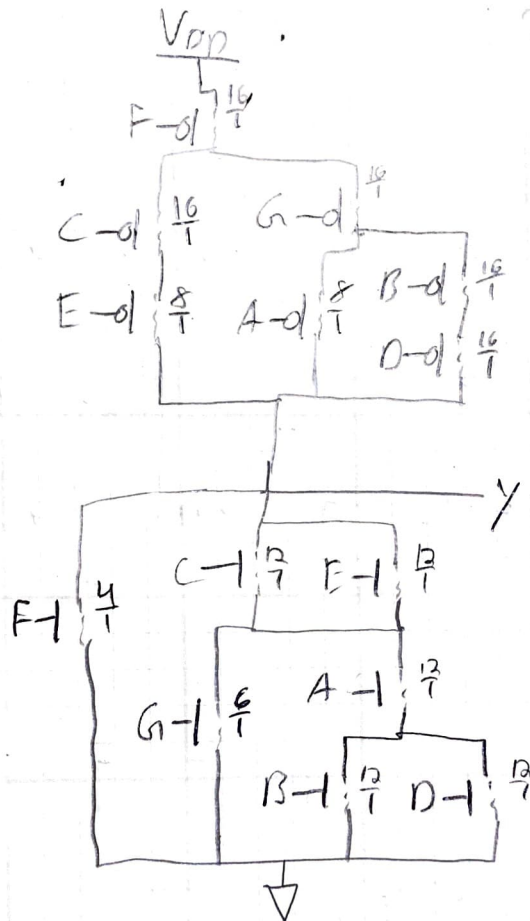 VDD
F 16/1
C 16/1 G 16/1
E 8/1 A 8/1 B 16/1
D 16/1
Y
C 12/1 E 12/1
F 4/1
G 6/1 A 12/1
B 12/1 D 12/1